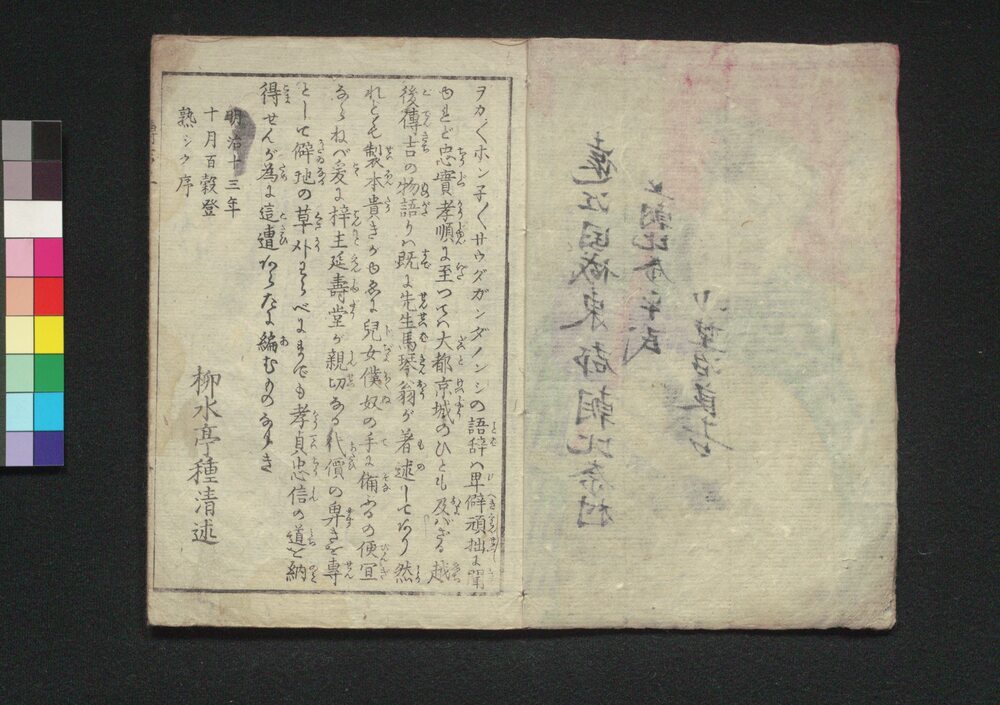 遠江国城東郡朝比奈村
ヲカ〱ホン子〱サウダガンダノンシの語辞ハ卑僻頑拙に聞
ゆれど忠實孝順に至つてハ大都京城のひとも及バざる越
後傳吉の物語りハ既に先生馬琴翁が著述してあり然
れども製本貴きがゆゑに兒女僕奴の手に備ふるの便宜
ならねバ爰に梓主延壽堂が親切なる代價の卑きを専
として僻地の草刈わらべにまでも孝貞忠信の道を納
得せんが為に這遭あらたに編むものなりき
明治十三年
十月百穀登
熟シク序
柳水亭種清述